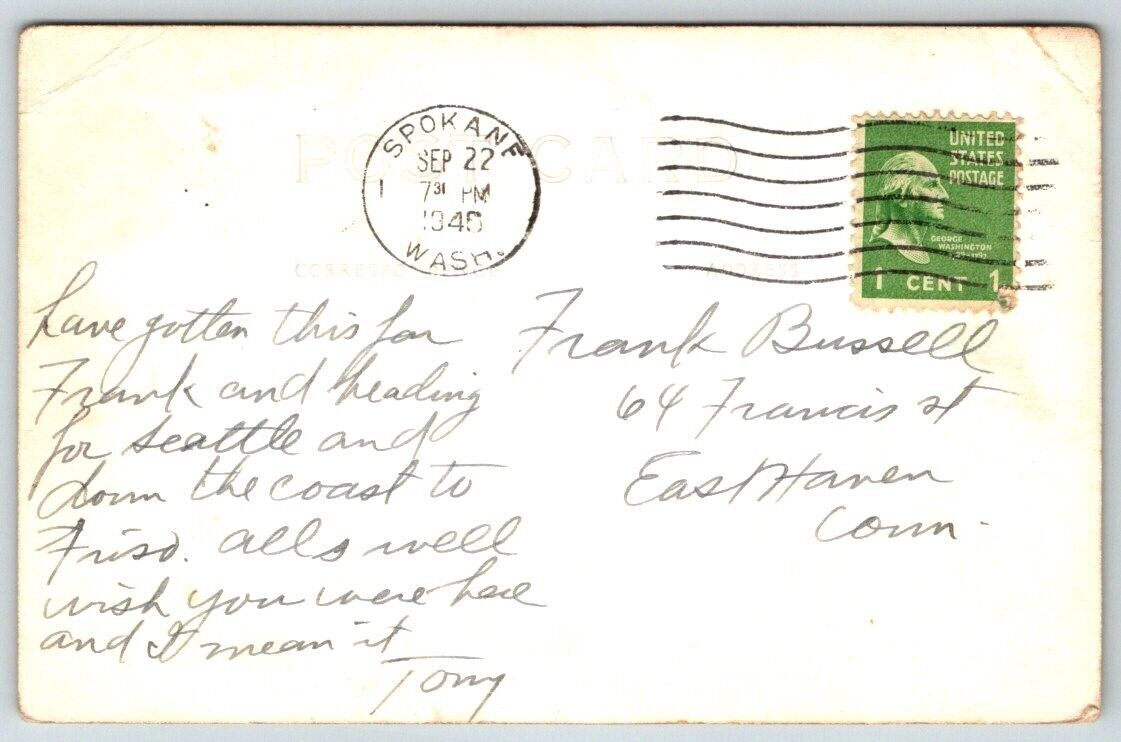 POST CARD
SPOKANE
SEP 22
1
7 31 PM
1940
WASH.
UNITED
STATES
POSTAGE
GEORGE
WASHINGTON
1 CENT 1
CORRESPONDENCE
ADDRESS
have gotten this far
Frank and heading
for seattle and
down the coast to
Frisco. alls well
wish you were here
and I mean it
Tony
Frank Bussell
64 Francis st
East Haven
Conn.